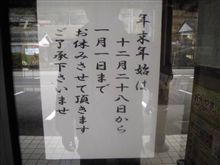 年末年始は
十二月二十八日から
一月一日まで
お休みさせて頂きます
ご了承下さいませ